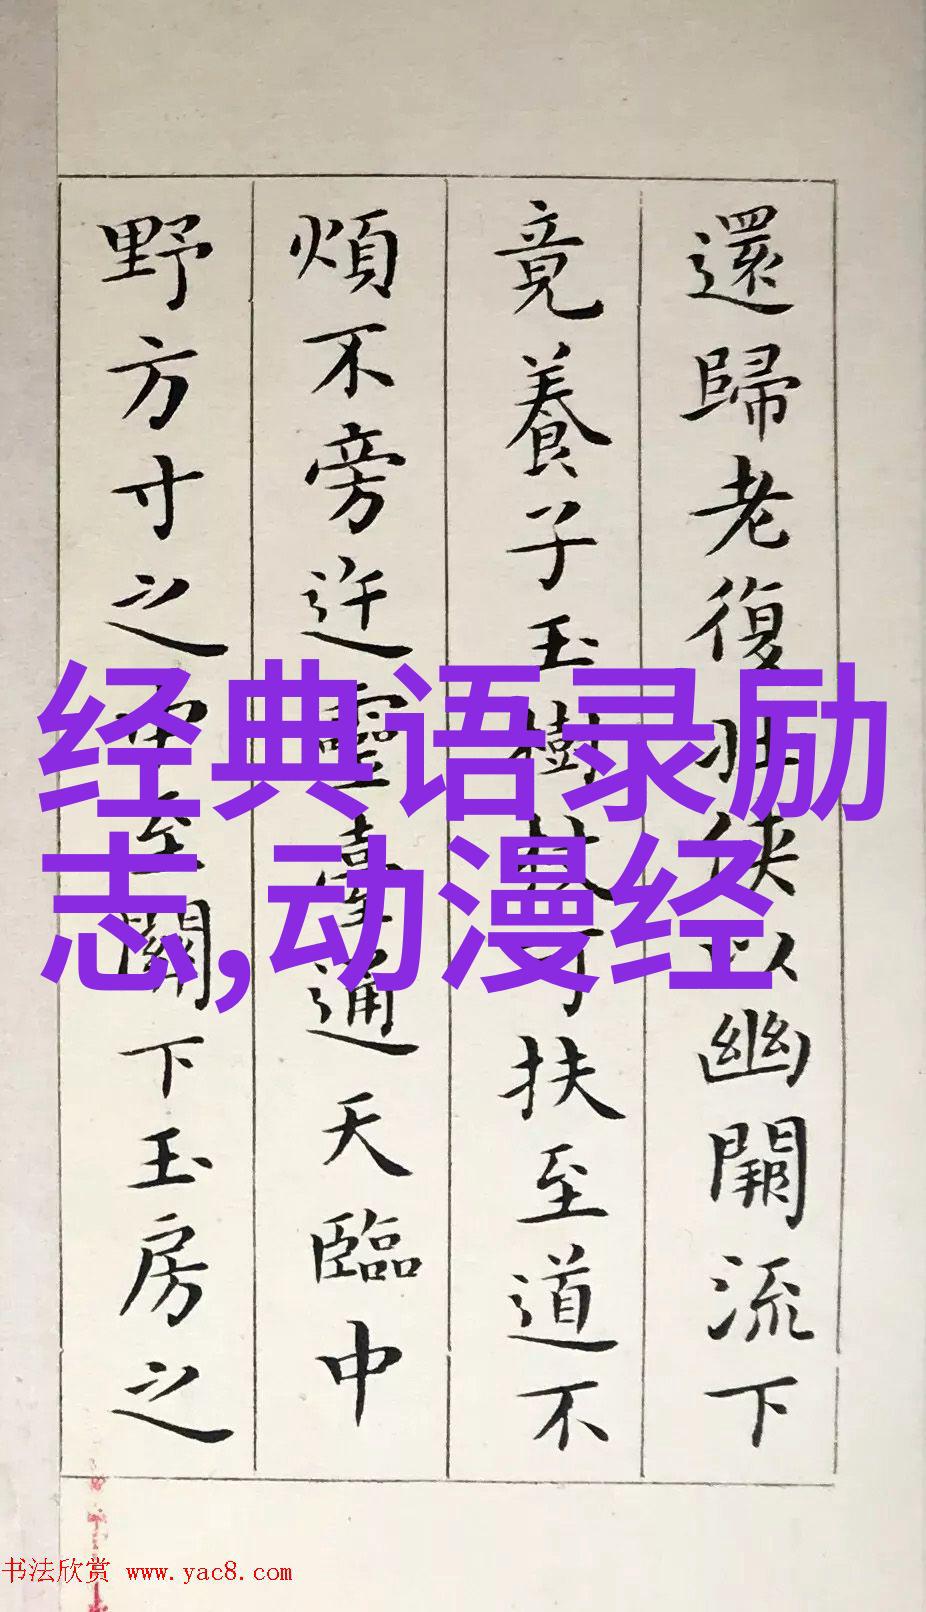 還歸老復
幽闕流下
竟養子玉樹
扶至道不
煩不旁迕靈臺通天臨中
野方寸之中至關下玉房之
经典语录励
志,动漫经
书法欣赏 www.yac8.com